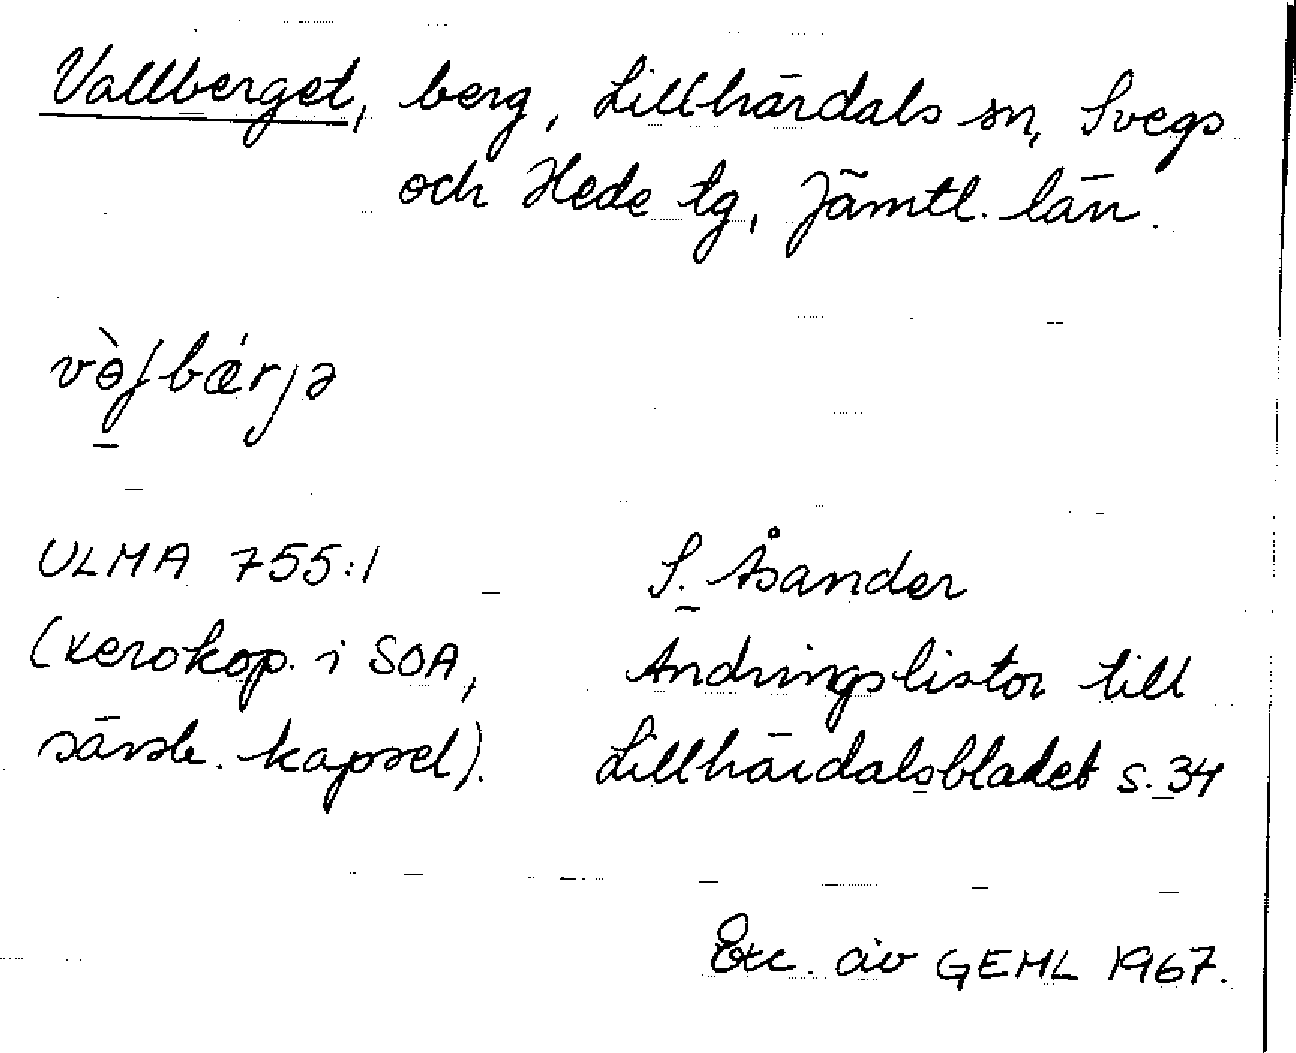 Vallberget, berg, Lillhärdals sn, Svegs
och Hede tg, Jämtl. län.
vɵ̀ʃbǽrjə
ULMA 755:1
(xerokop. i SOA,
särsk. kapsel).
S. Åsander
Ändringslistor till
Lillhärdalsbladet s. 34
Exc. av GEHL 1967.